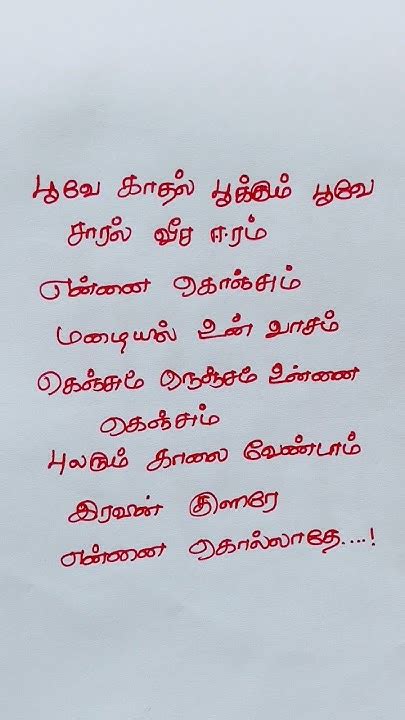 பூவே காதல் பூக்கும் பூவே
சாரல் வீச ஈரம்
என்னை கொஞ்சும்
மடியில் உன் வாசம்
கெஞ்சும் நெஞ்சம் உன்னை
கெஞ்சும்
புலரும் காலை வேண்டாம்
இரவின் குளிரே
என்னை கொல்லாதே....!